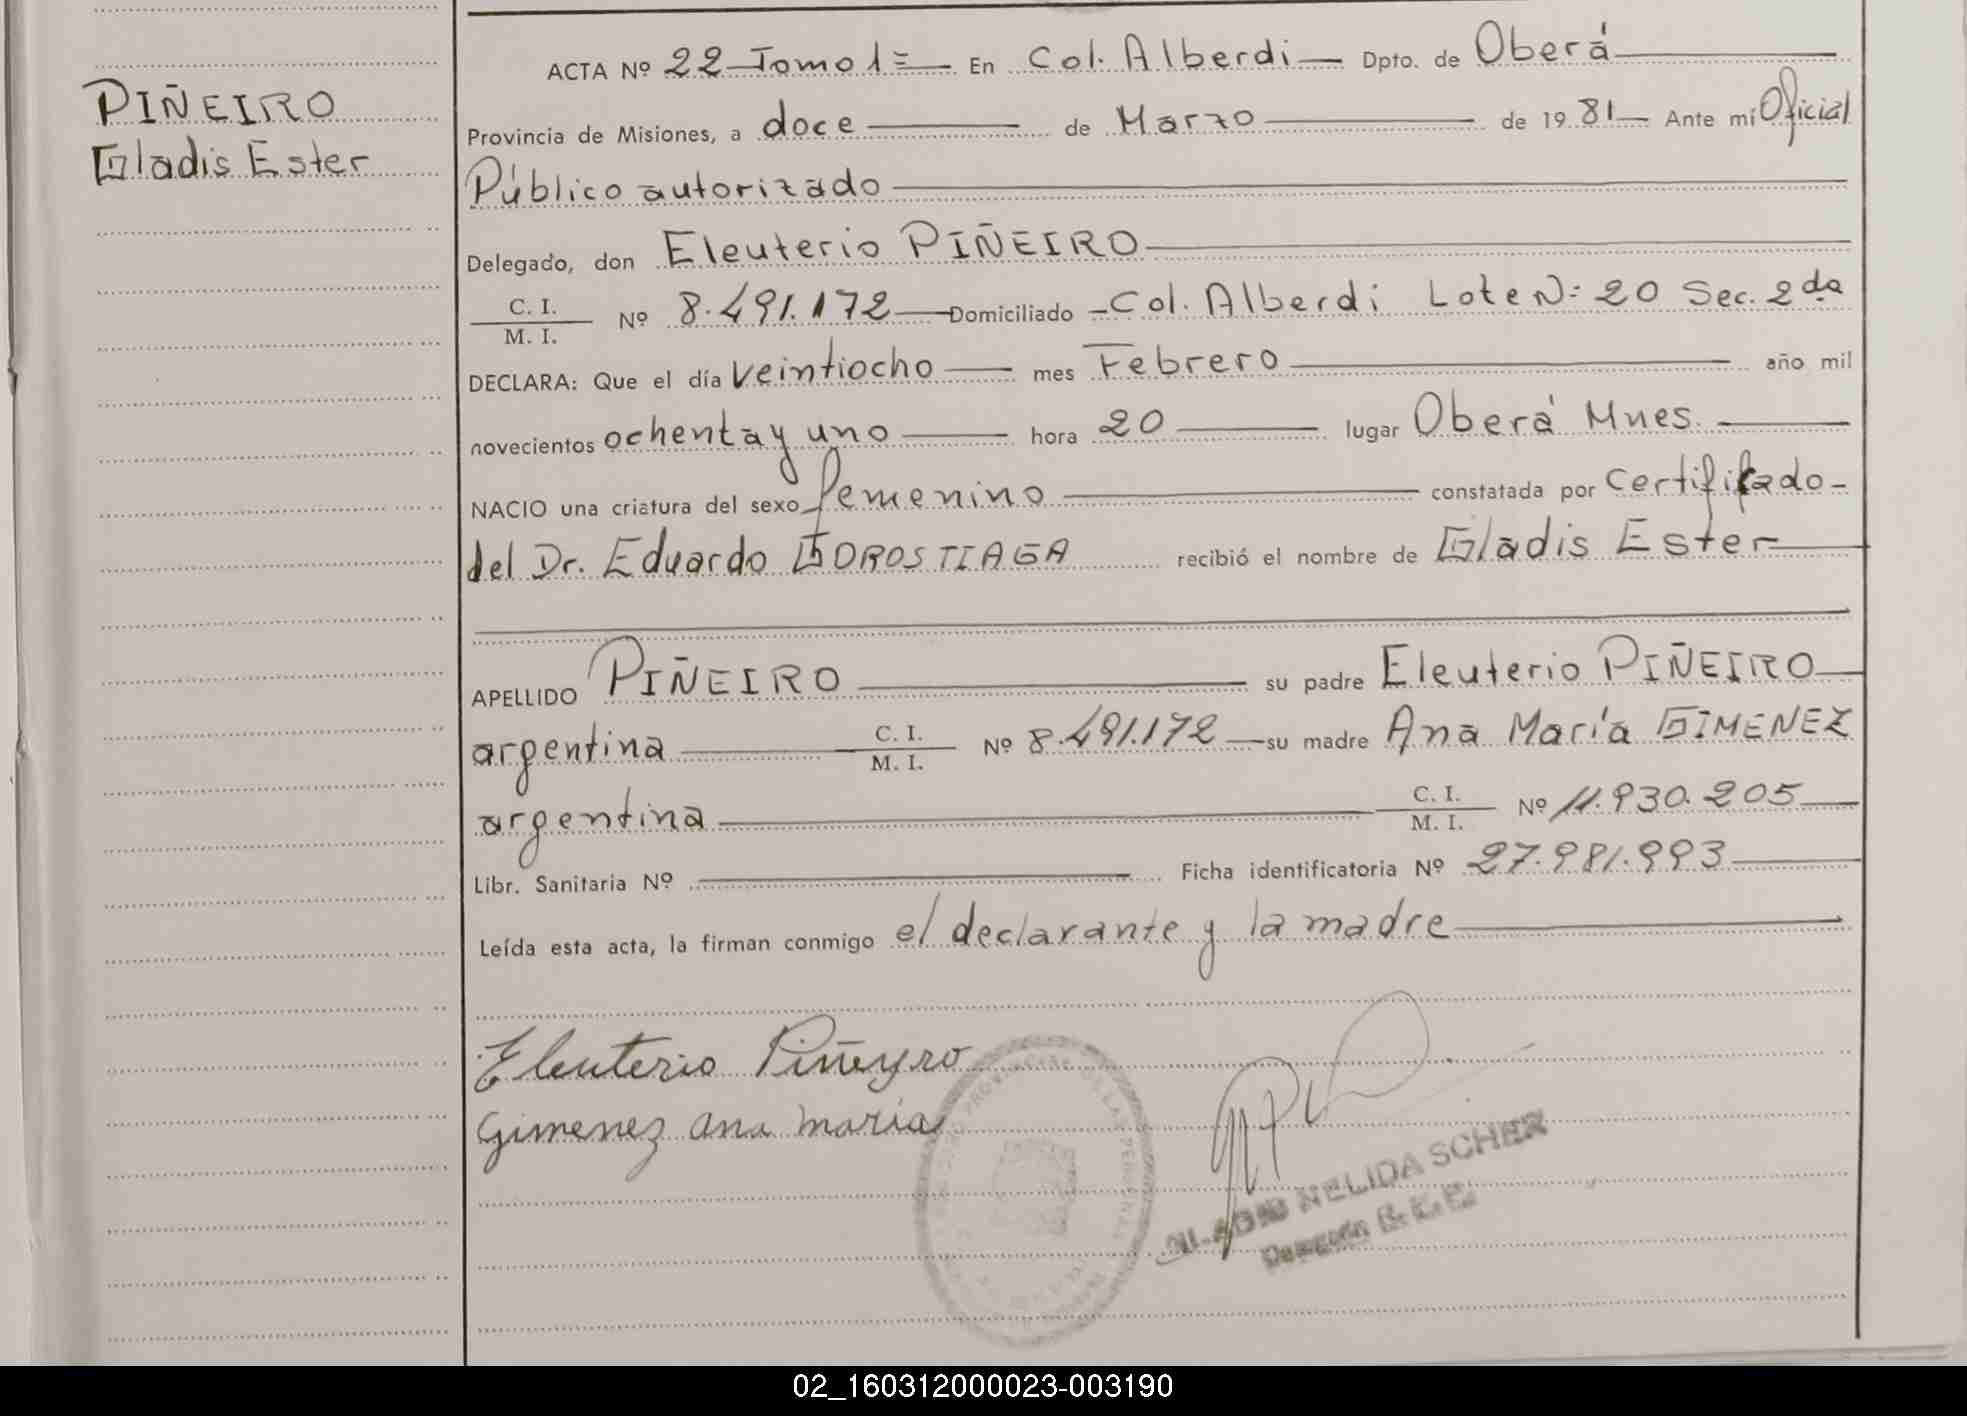 PIÑEIRO
Gladis Ester
ACTA Nº 22 Tomo 1= En Col. Alberdi Dpto. de Oberá
Provincia de Misiones, a doce de Marzo de 19 81 Ante mí Oficial
Público autorizado
Delegado, don Eleuterio PIÑEIRO
C. I.
M. I. Nº 8.491.172 Domiciliado Col. Alberdi Lote N= 20 Sec. 2da
DECLARA: Que el día veintiocho mes Febrero año mil
novecientos ochenta y uno hora 20 lugar Oberá Mnes.
NACIO una criatura del sexo femenino constatada por Certificado
del Dr. Eduardo GOROSTIAGA recibió el nombre de Gladis Ester
APELLIDO PIÑEIRO su padre Eleuterio PIÑEIRO
argentina C. I. M. I. Nº 8.491.172 su madre Ana María GIMENEZ
argentina C. I. M. I. Nº 11.930.205
Libr. Sanitaria Nº Ficha identificatoria Nº 27.981.993
Leída esta acta, la firman conmigo el declarante y la madre
Eleuterio Piñeyro
Gimenez ana maria
NELIDA SCHER
02_160312000023-003190